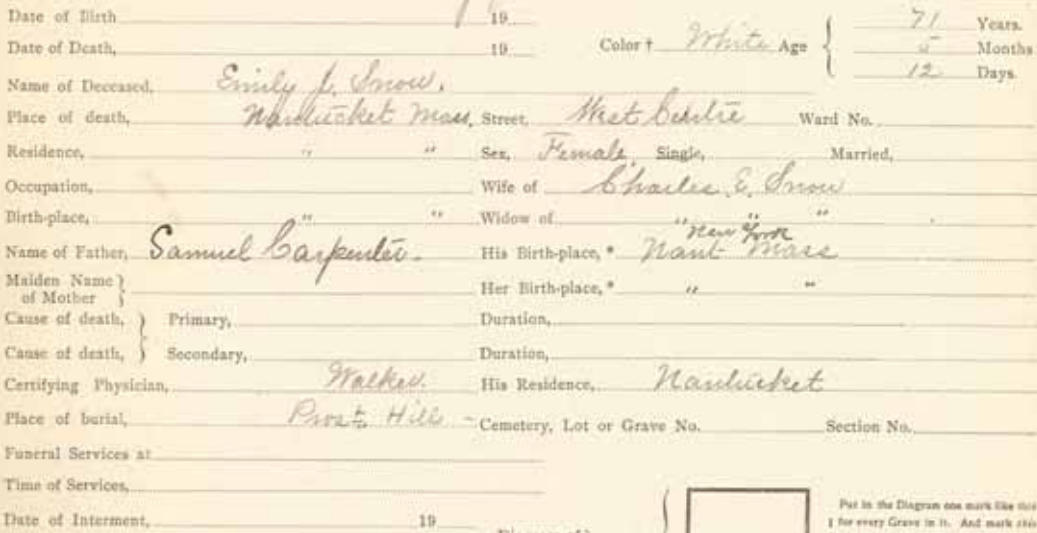 Date of Birth 19
Date of Death, 19 Color † White Age { 71 Years.
5 Months
12 Days.
Name of Deceased, Emily J. Snow.
Place of death, Nantucket Mass, Street, West Centre Ward No.
Residence, " " Sex, Female, Single, Married,
Occupation, Wife of Charles E. Snow
Birth-place, " " Widow of " " "
New York
Name of Father, Samuel Carpenter. His Birth-place, * Nant Mass
Maiden Name } of Mother Her Birth-place, * " "
Cause of death, } Primary, Duration,
Cause of death, } Secondary, Duration,
Certifying Physician, Walker. His Residence, Nantucket
Place of burial, Prost. Hill - Cemetery, Lot or Grave No. Section No.
Funeral Services at
Time of Services,
Put in the Diagram one mark like this
Date of Interment, 19 for every Grave in it. And mark this